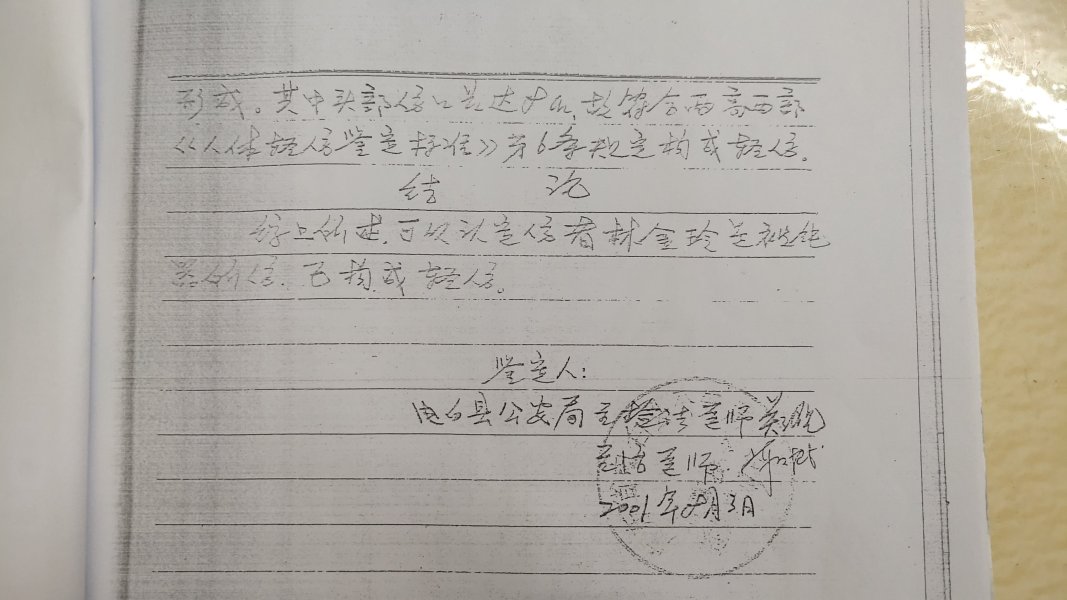 形成。其中头部伤口长达8cm,故符合两高两部
《人体轻伤鉴定标准》第6条规定构成轻伤。
结 论
综上所述,可以认定伤者林金玲是被钝
器所伤,已构成轻伤。
鉴定人:
电白县公安局主检法医师
法医师
2001年8月3日